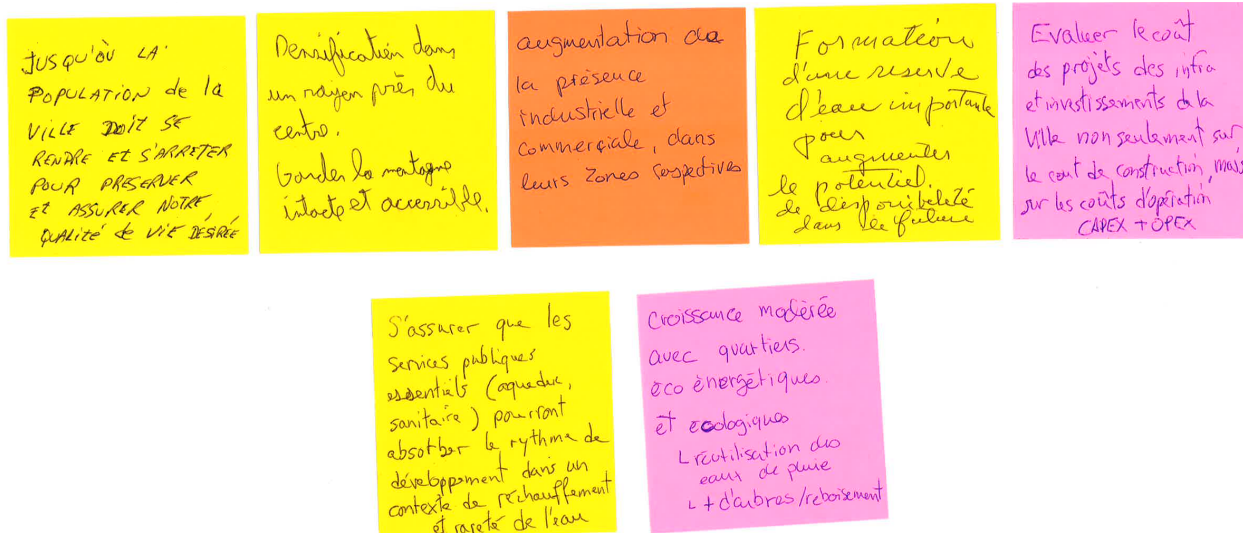 JUSQU'OÙ LA
POPULATION de la
VILLE DOIT SE
RENDRE ET S'ARRETER
POUR PRESERVER
ET ASSURER NOTRE
QUALITÉ de VIE DÉSIRÉE
Densification dans
un rayon près du
centre.
Garder la montagne
intacte et accessible.
augmentation de
la présence
industrielle et
commerçiale, dans
leurs zones respectives
Formation
d'une reserve
d'eau importante
pour
augmenter
le potentiel.
de disponibileté
dans le future
Evaluer le coût
des projets des infra
et investissements de la
Ville non seulement sur
le cout de construction, mais
sur les coûts d'opération
CAPEX + OPEX
S'assurer que les
services publiques
essentiels (aqueduc,
sanitaire) pourront
absorber le rythme de
développement dans un
contexte de réchauffement
et rareté de l'eau
Croissance modérée
avec quartiers.
éco énergétiques.
et ecologiques
L réutilisation des
eaux de pluie
L + d'arbres/reboisement